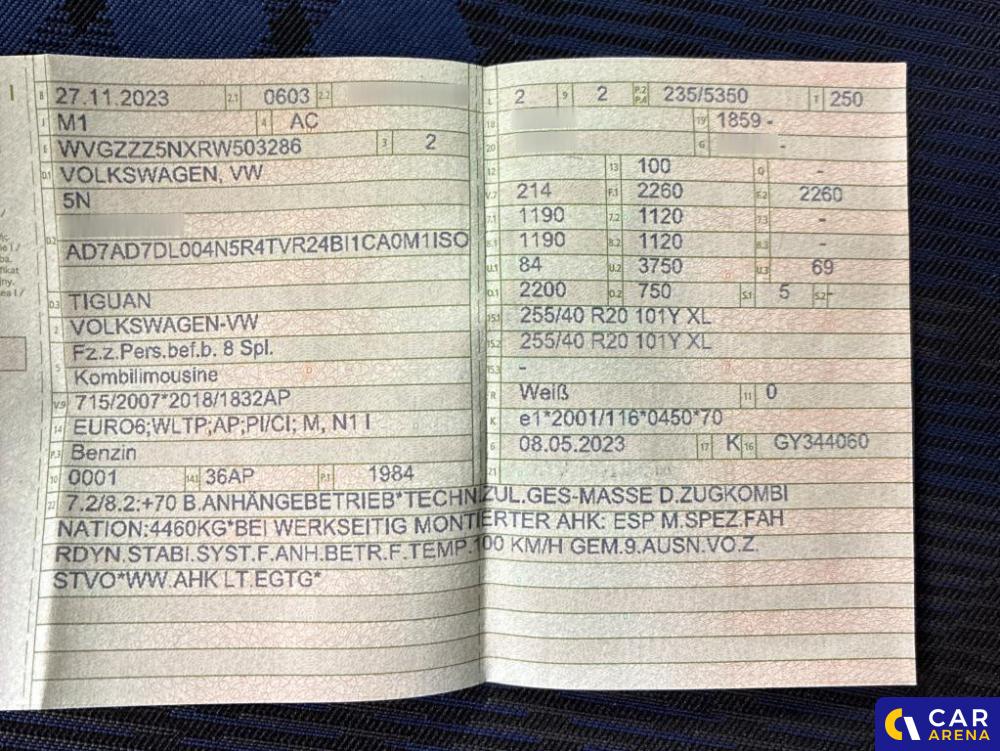 B 27.11.2023 2.1 0603 2.2
J M1 4 AC
E WVGZZZ5NXRW503286 3 2
D.1 VOLKSWAGEN, VW
5N
D.2 AD7AD7DL004N5R4TVR24BI1CA0M1ISO
D.3 TIGUAN
2 VOLKSWAGEN-VW
5 Fz.z.Pers.bef.b. 8 Spl.
Kombilimousine
V.9 715/2007*2018/1832AP
14 EURO6;WLTP;AP;PI/CI; M, N1 I
P.3 Benzin
10 0001 14.1 36AP P.1 1984
L 2 9 2 P.2 P.4 235/5350 T 250
18 19 1859 -
20 G -
12 13 100 Q -
V.7 214 F.1 2260 F.2 2260
7.1 1190 7.2 1120 7.3 -
8.1 1190 8.2 1120 8.3 -
U.1 84 U.2 3750 U.3 69
O.1 2200 O.2 750 S.1 5 S.2 -
15.1 255/40 R20 101Y XL
15.2 255/40 R20 101Y XL
15.3 -
R Weiß 11 0
K e1*2001/116*0450*70
6 08.05.2023 17 K 16 GY344060
21
22 7.2/8.2:+70 B.ANHÄNGEBETRIEB*TECHN.ZUL.GES-MASSE D.ZUGKOMBI
NATION:4460KG*BEI WERKSEITIG MONTIERTER AHK: ESP M.SPEZ.FAH
RDYN.STABI.SYST.F.ANH.BETR.F.TEMP.100 KM/H GEM.9.AUSN.VO.Z.
STVO*WW.AHK LT.EGTG*
CAR
ARENA